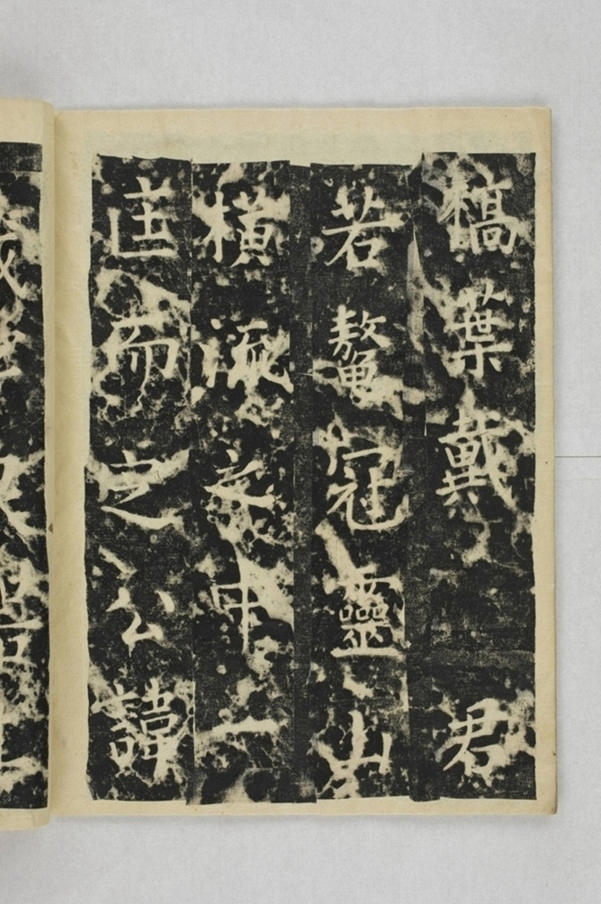 槁葉戴君
若鼇冠靈山
橫流甲一
匡而之公諱